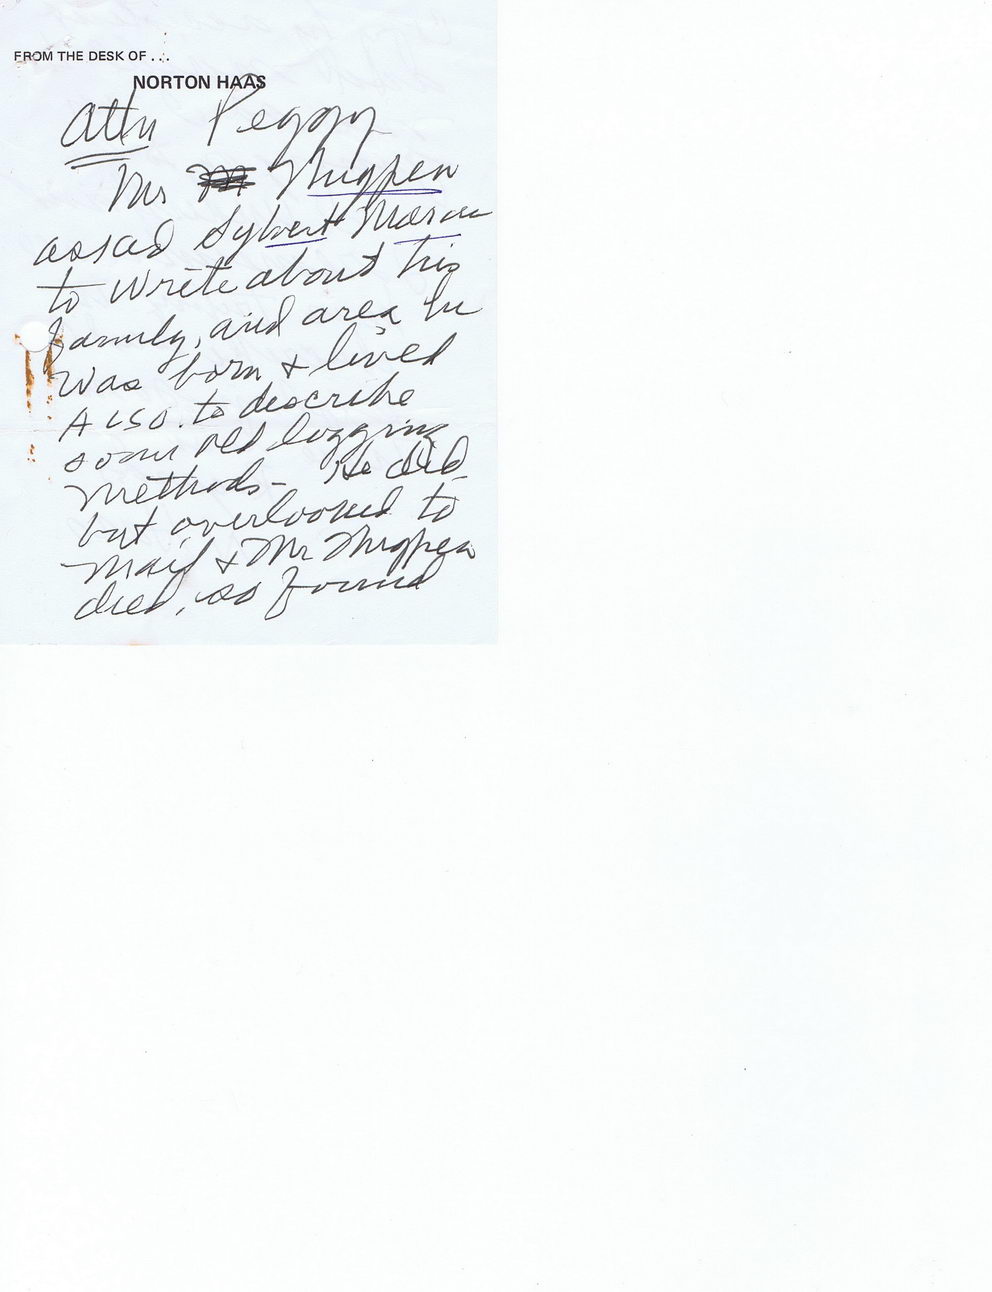 FROM THE DESK OF . . .
NORTON HAAS
Attn Peggy
Mr Thigpen
asked Sybert
to write about his
family, and area he
was born & lived
Also. to describe
some old logging
methods - He did
but overlooked to
mail & Mr Thigpen
died, so found